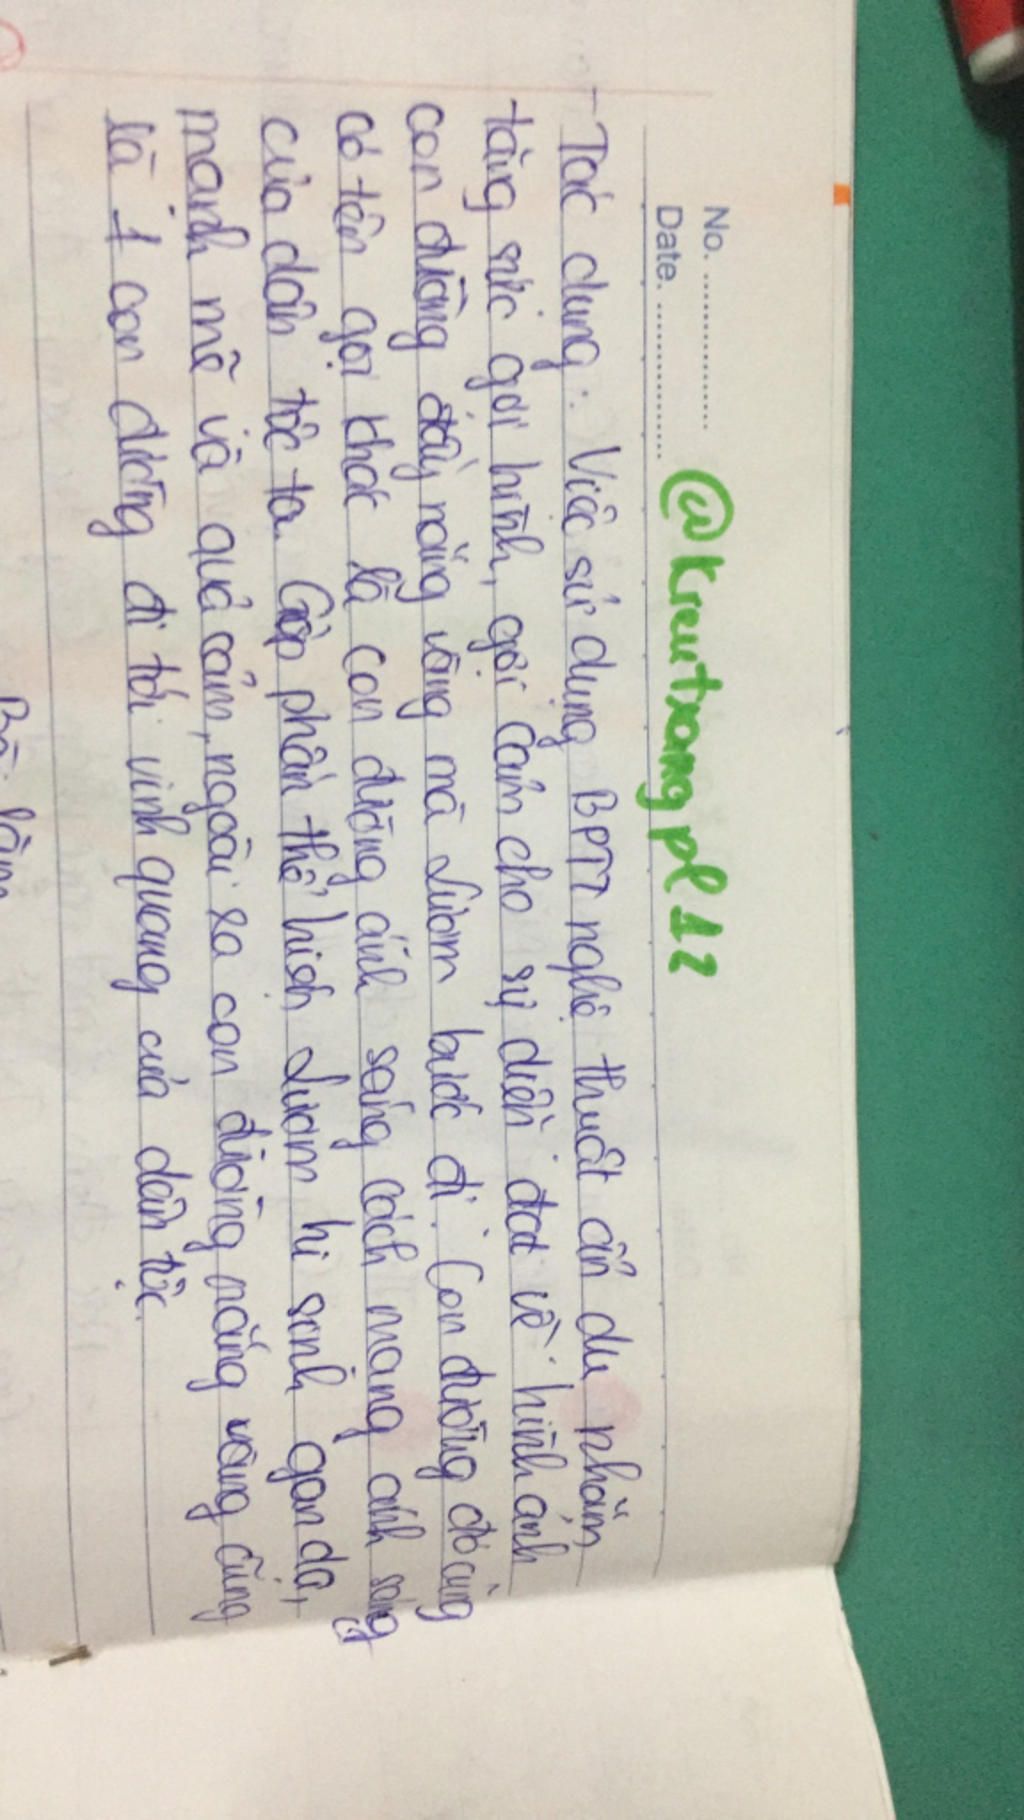 No. ...............
Date. ...............
@Kieutrangpl12
- Tác dụng: Việc sử dụng BPTT nghệ thuật ẩn dụ nhằm
tăng sức gợi hình, gợi cảm cho sự diễn đạt về hình ảnh
con đường đầy nắng vàng mà Lượm bước đi. Con đường đó cũng
có tên gọi khác là con đường ánh sáng cách mạng ánh sáng
của dân tộc ta. Góp phần thể hiện Lượm hi sinh gan dạ,
mạnh mẽ và quả cảm, ngoài ra con đường nắng vàng cũng
là 1 con đường đi tới vinh quang của dân tộc.
Bài làm